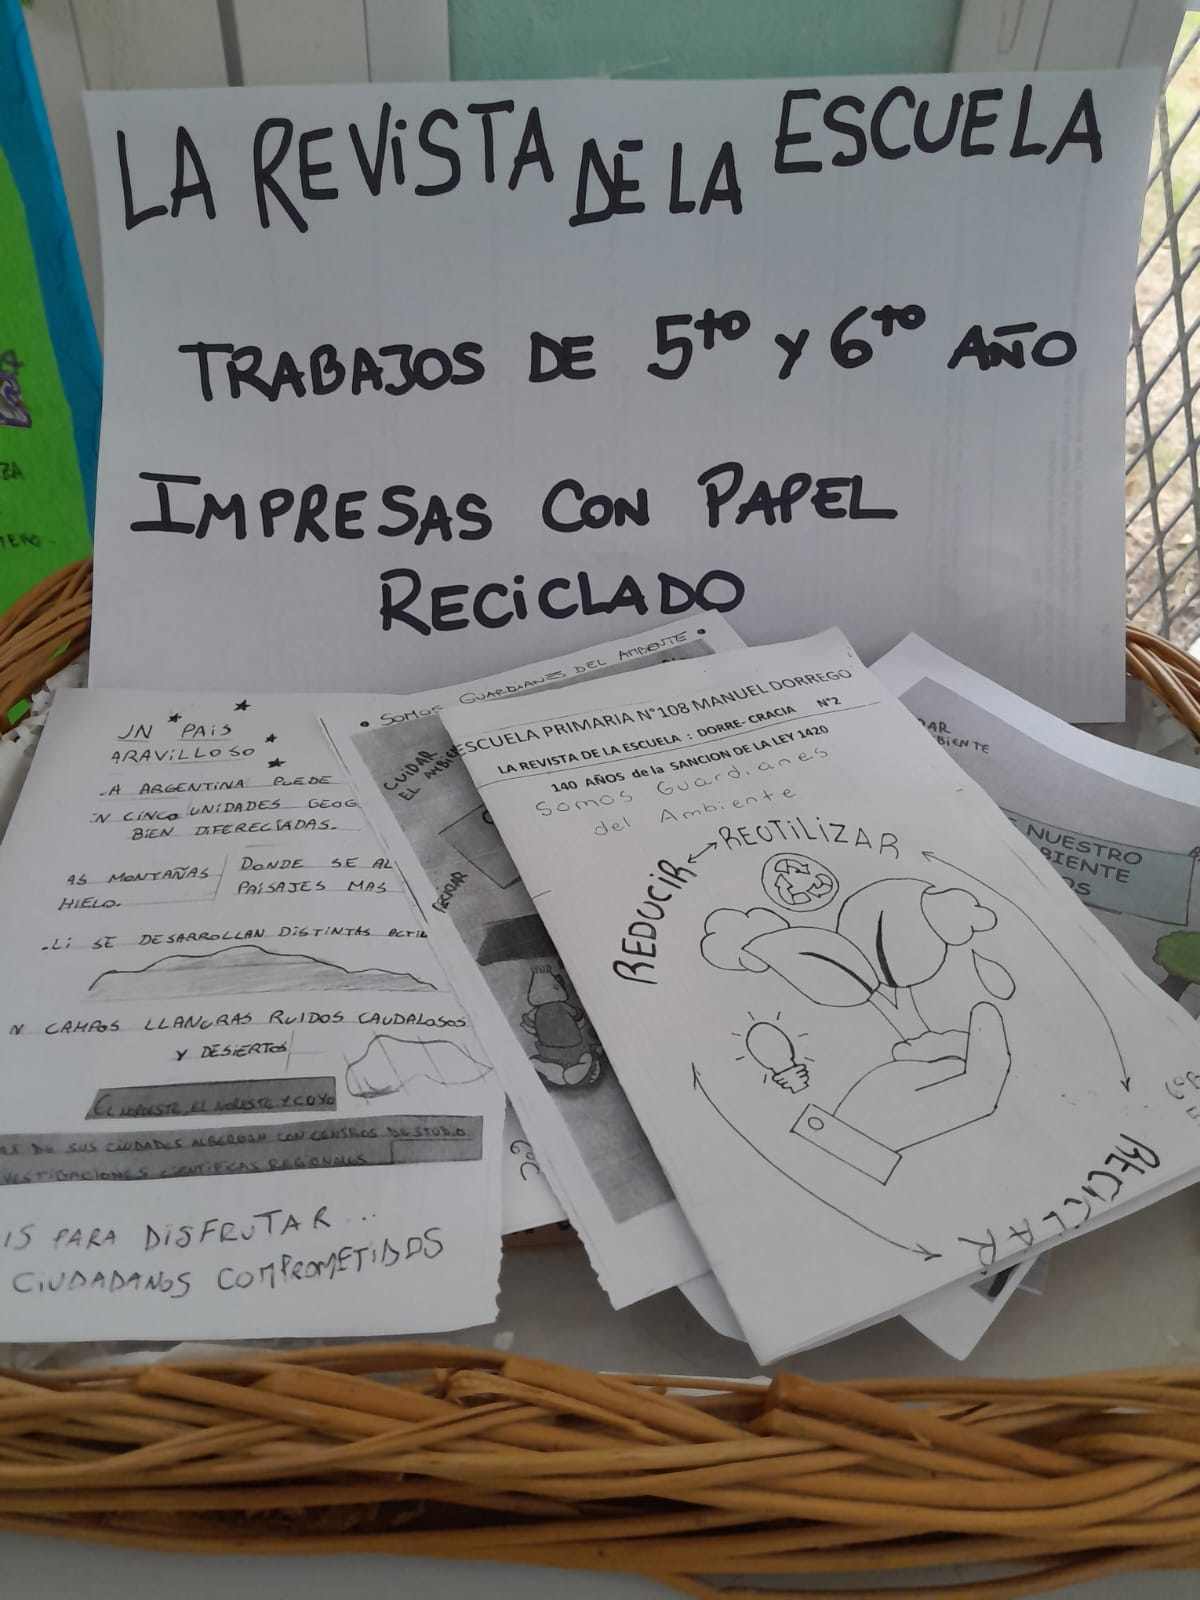 LA REVISTA DE LA ESCUELA
TRABAJOS DE 5to Y 6to AÑO
IMPRESAS CON PAPEL
RECICLADO
UN PAIS
ARAVILLOSO
.A ARGENTINA PUEDE
N CINCO UNIDADES GEOG
BIEN DIFERECIADAS.
AS MONTAÑAS DONDE SE AL
HIELO. PAISAJES MAS
.LI SE DESARROLLAN DISTINTAS ACTIV
N CAMPOS LLANURAS RUIDOS CAUDALOSOS
Y DESIERTOS
EL NOROESTE EL NORESTE Y CUYO
DE SUS CIUDADES ALBERGAN CON CENTROS DE STUDIO
VESTIGACIONES CIENTIFICAS REGIONALES
IS PARA DISFRUTAR...
CIUDADANOS COMPROMETIDOS
• SOMOS GUARDIANES DEL AMBIENTE •
CUIDAR
EL AMBIE
RECICLAR
ESCUELA PRIMARIA N°108 MANUEL DORREGO
LA REVISTA DE LA ESCUELA : DORRE- CRACIA N°2
140 AÑOS de la SANCION DE LA LEY 1420
Somos Guardianes
del Ambiente
REDUCIR ↔ REUTILIZAR
RECICLAR
DAR
BIENTE
NUESTRO
BIENTE
OS
ZA
TERO.